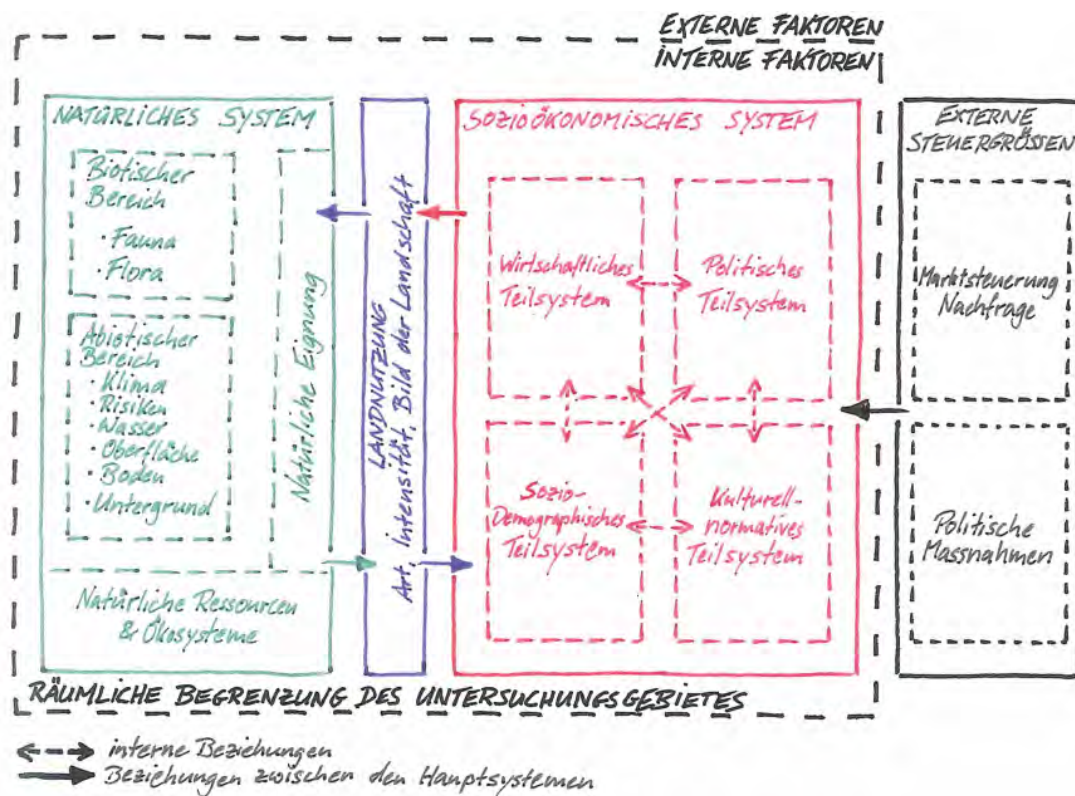 EXTERNE FAKTOREN
INTERNE FAKTOREN
NATÜRLICHES SYSTEM
Biotischer
Bereich
· Fauna
· Flora
Abiotischer
Bereich
· Klima
· Risiken
· Wasser
· Oberfläche
· Boden
· Untergrund
Natürliche Eignung
Natürliche Ressourcen
& Ökosysteme
LANDNUTZUNG
Art, Intensität, Bild der Landschaft
SOZIOÖKONOMISCHES SYSTEM
Wirtschaftliches
Teilsystem
Politisches
Teilsystem
Sozio-
Demographisches
Teilsystem
Kulturell-
normatives
Teilsystem
EXTERNE
STEUERGRÖSSEN
Marktsteuerung
Nachfrage
Politische
Massnahmen
RÄUMLICHE BEGRENZUNG DES UNTERSUCHUNGSGEBIETES
interne Beziehungen
Beziehungen zwischen den Hauptsystemen